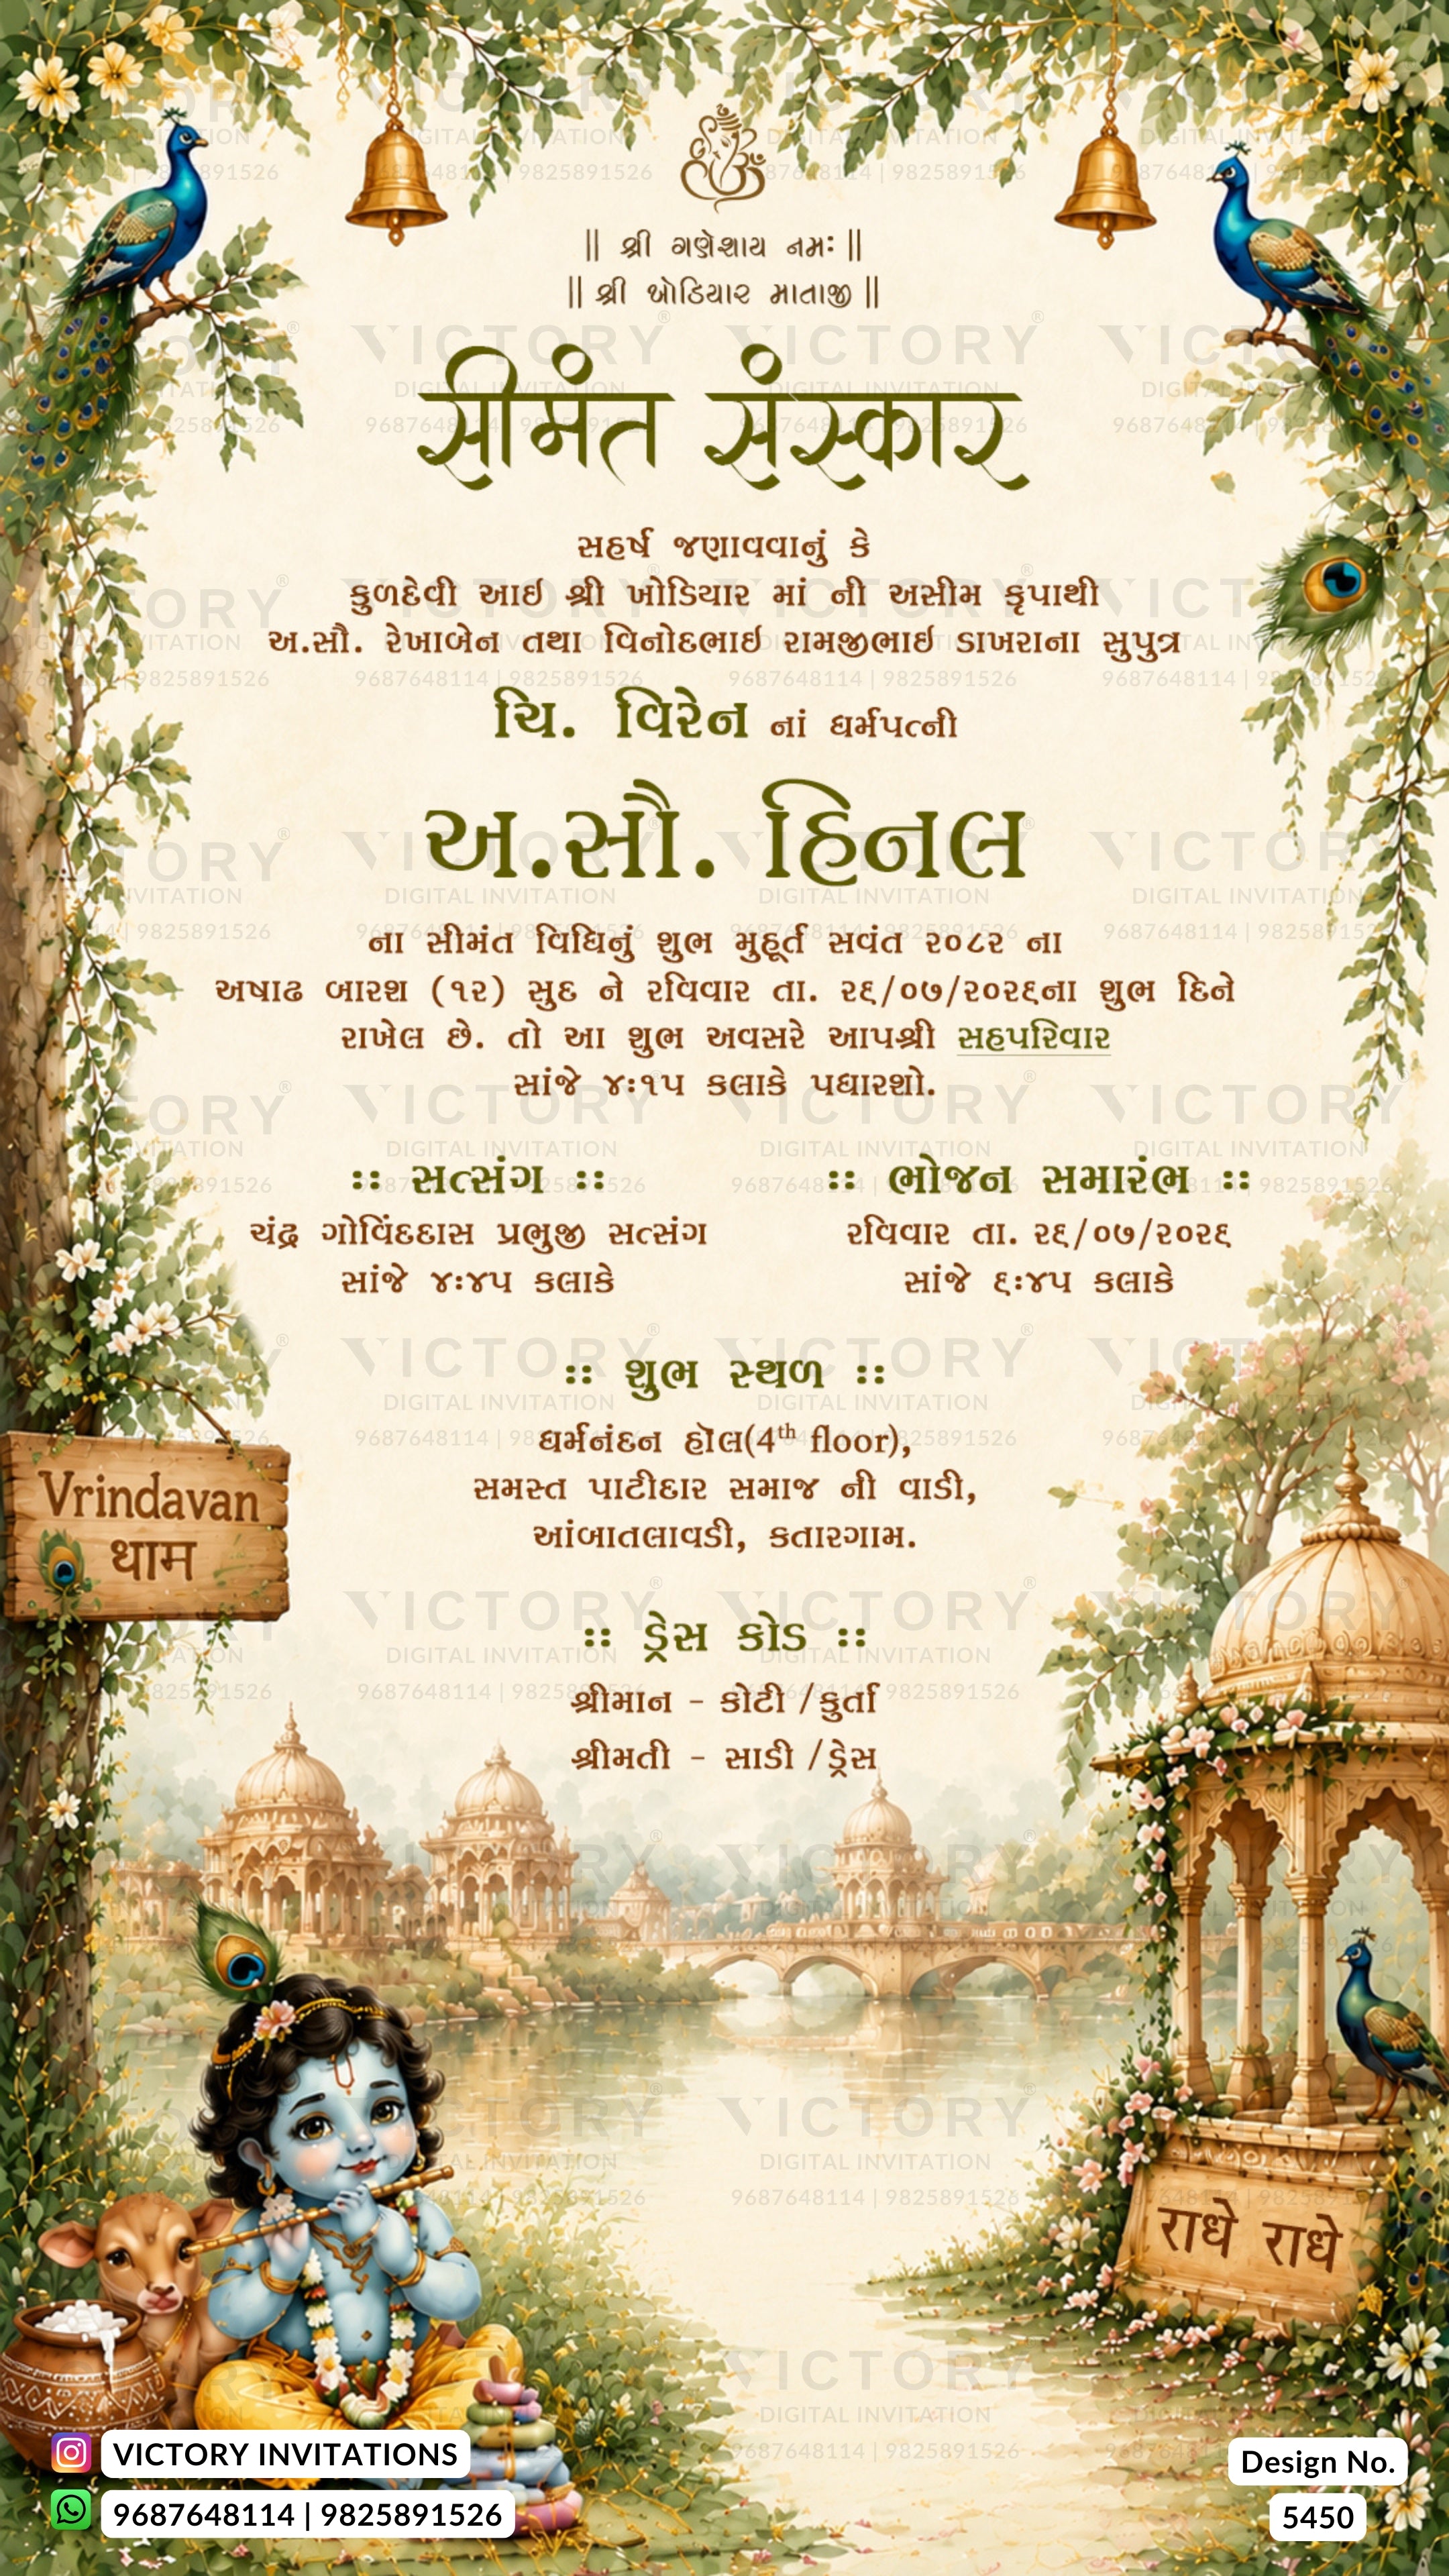 || શ્રી ગણેશાય નમઃ ||
|| શ્રી ખોડિયાર માતાજી ||
सीमंत संस्कार
સહર્ષ જણાવવાનું કે
કુળદેવી આઈ શ્રી ખોડિયાર માં ની અસીમ કૃપાથી
અ.સૌ. રેખાબેન તથા વિનોદભાઈ રામજીભાઈ ડાખરાના સુપુત્ર
ચિ. વિરેન નાં ધર્મપત્ની
અ.સૌ. હિનલ
ના સીમંત વિધિનું શુભ મુહૂર્ત સવંત ૨૦૮૨ ના
અષાઢ બારશ (૧૨) સુદ ને રવિવાર તા. ૨૬/૦૭/૨૦૨૬ના શુભ દિને
રાખેલ છે. તો આ શુભ અવસરે આપશ્રી સહપરિવાર
સાંજે ૪:૧૫ કલાકે પધારશો.
:: સત્સંગ ::
ચંદ્ર ગોવિંદદાસ પ્રભુજી સત્સંગ
સાંજે ૪:૪૫ કલાકે
:: ભોજન સમારંભ ::
રવિવાર તા. ૨૬/૦૭/૨૦૨૬
સાંજે ૬:૪૫ કલાકે
:: શુભ સ્થળ ::
ધર્મનંદન હોલ(4th floor),
સમસ્ત પાટીદાર સમાજ ની વાડી,
આંબાતલાવડી, કતારગામ.
Vrindavan
धाम
:: ડ્રેસ કોડ ::
શ્રીમાન - કોટી /કુર્તા
શ્રીમતી - સાડી /ડ્રેસ
राधे राधे
VICTORY INVITATIONS
9687648114 | 9825891526
Design No.
5450
VICTORY®
DIGITAL INVITATION
9687648114 | 9825891526